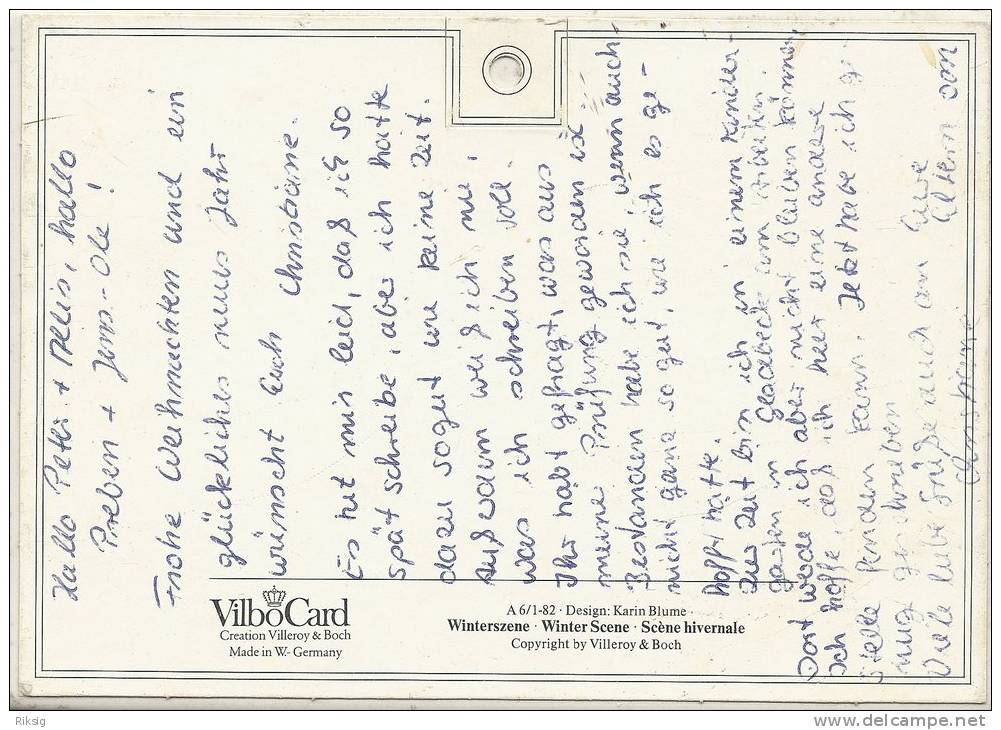 Hallo Peter + Nelli, hallo
Preben + Jens-Ole!
Frohe Weihnachten und ein
glückliches neues Jahr
wünscht Euch Christiane.
Es tut mir leid, daß ich so
spät schreibe, aber ich hatte
dazu sogut wie keine Zeit.
Außerdem weiß ich nie,
was ich schreiben soll.
Ihr habt gefragt, was aus
meine Prüfung geworden ist.
Bestanden habe ich sie, wenn auch
nicht ganz so gut, wie ich es ge-
hofft hatte.
Zur Zeit bin ich in einem Kinder-
garten in Gladbeck am arbeiten.
Dort werde ich aber nicht bleiben können,
Ich hoffe, daß ich hier eine andere
Stelle finden kann. Jetzt habe ich ge-
nug geschrieben
Viele liebe Grüße auch an Eure
Eltern von
Christiane
VilboCard
Creation Villeroy & Boch
Made in W.-Germany
A 6/1-82 · Design: Karin Blume ·
Winterszene · Winter Scene · Scène hivernale
Copyright by Villeroy & Boch
Riksig
delcampe.net